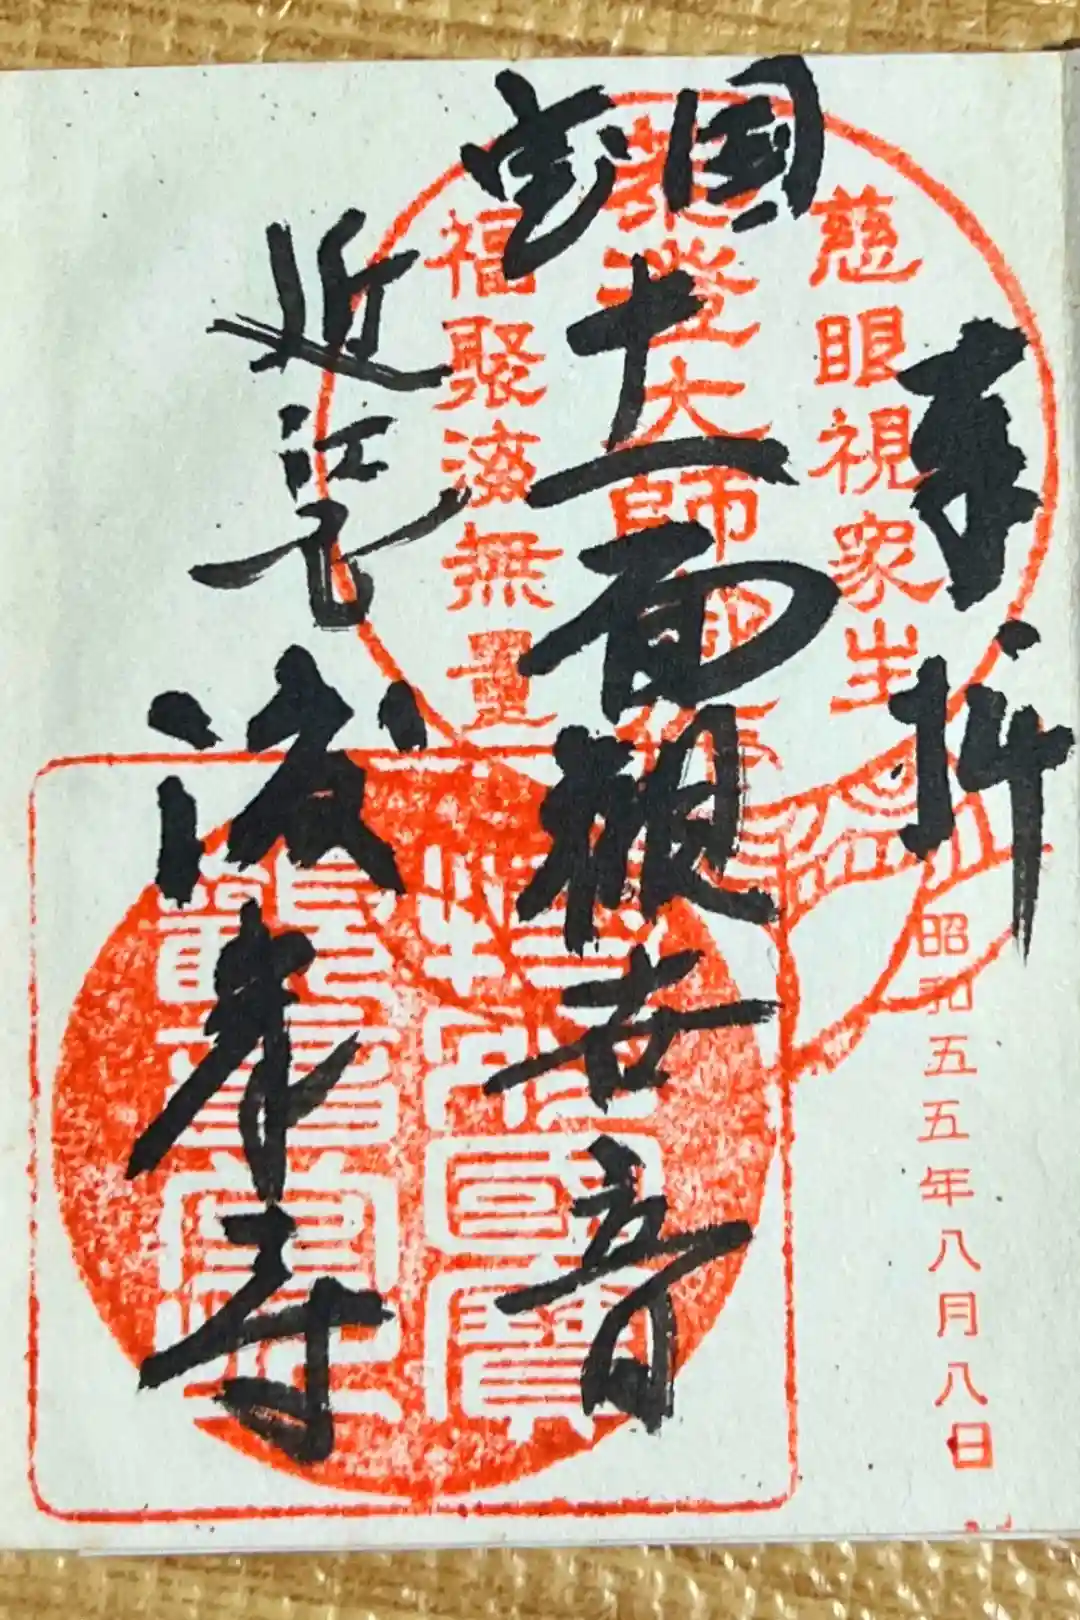 奉拝
昭和五五年八月八日
慈眼視衆生
泰澄大師
福聚海無量
国宝
十一面観世音
近江
渡岸寺